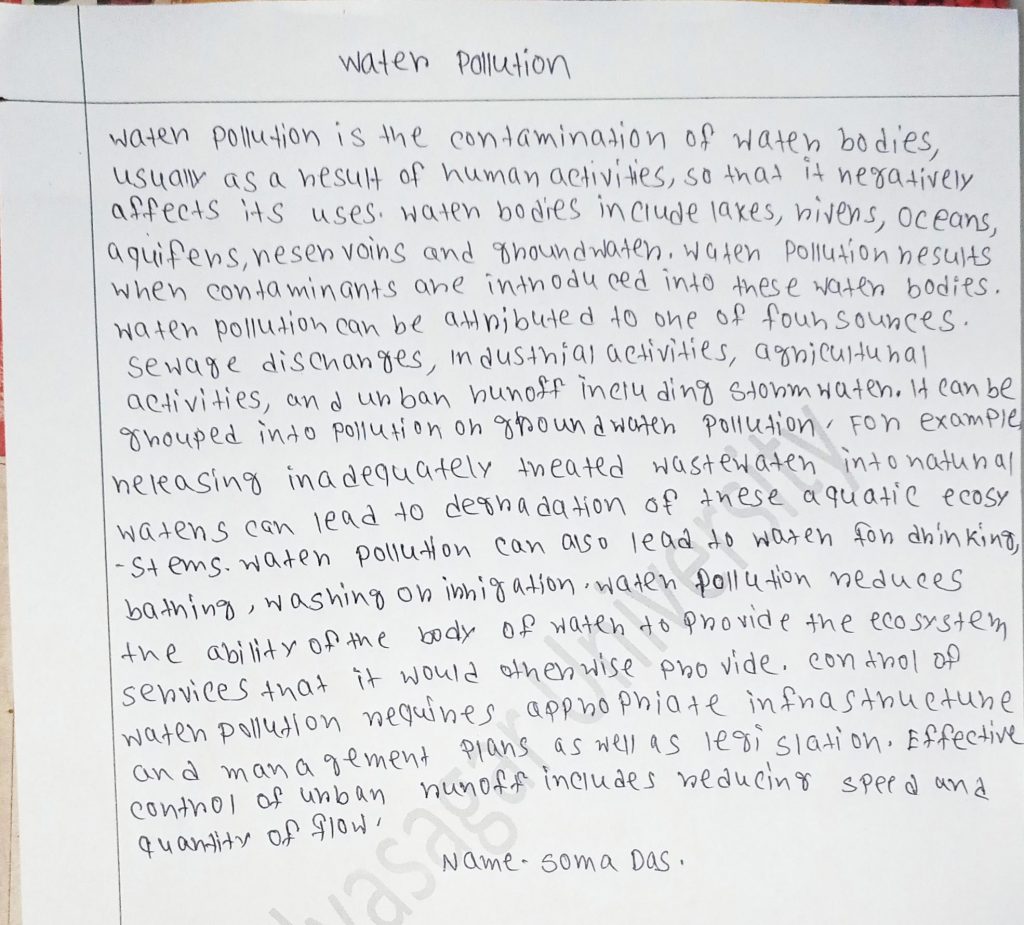 Water Pollution
Water pollution is the contamination of water bodies,
usually as a result of human activities, so that it negatively
affects its uses. water bodies include lakes, rivers, oceans,
aquifers, reservoirs and groundwater. Water pollution results
when contaminants are introduced into these water bodies.
water pollution can be attributed to one of four sources.
sewage discharges, industrial activities, agricultural
activities, and urban runoff including stormwater. It can be
grouped into pollution or groundwater pollution, For example
releasing inadequately treated wastewater into natural
waters can lead to degradation of these aquatic ecosy
-stems. water pollution can also lead to water for drinking,
bathing, washing or irrigation. water pollution reduces
the ability of the body of water to provide the ecosystem
services that it would otherwise provide. control of
water pollution requires appropriate infrastructure
and management plans as well as legislation. Effective
control of urban runoff includes reducing speed and
quantity of flow.
Name- Soma Das.
dyasagar University